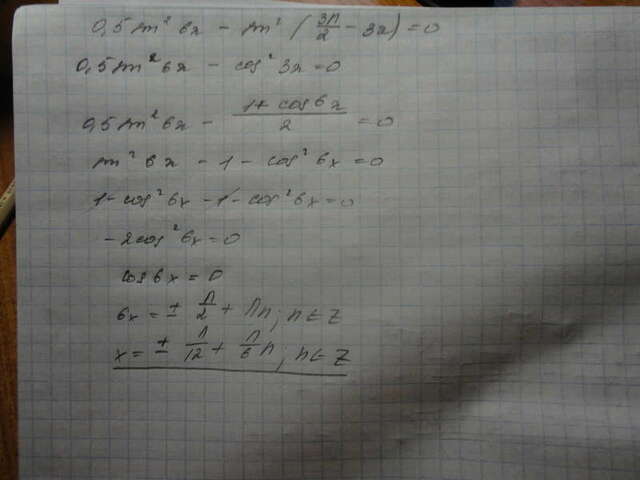 0,5 sin² 6x − sin² (3π/2 − 3x) = 0
0,5 sin² 6x − cos² 3x = 0
0,5 sin² 6x − (1 + cos 6x)/2 = 0
sin² 6x − 1 − cos² 6x = 0
1 − cos² 6x − 1 − cos² 6x = 0
−2cos² 6x = 0
cos 6x = 0
6x = ± π/2 + πn; n ∈ Z
x = ± π/12 + π/6 n; n ∈ Z